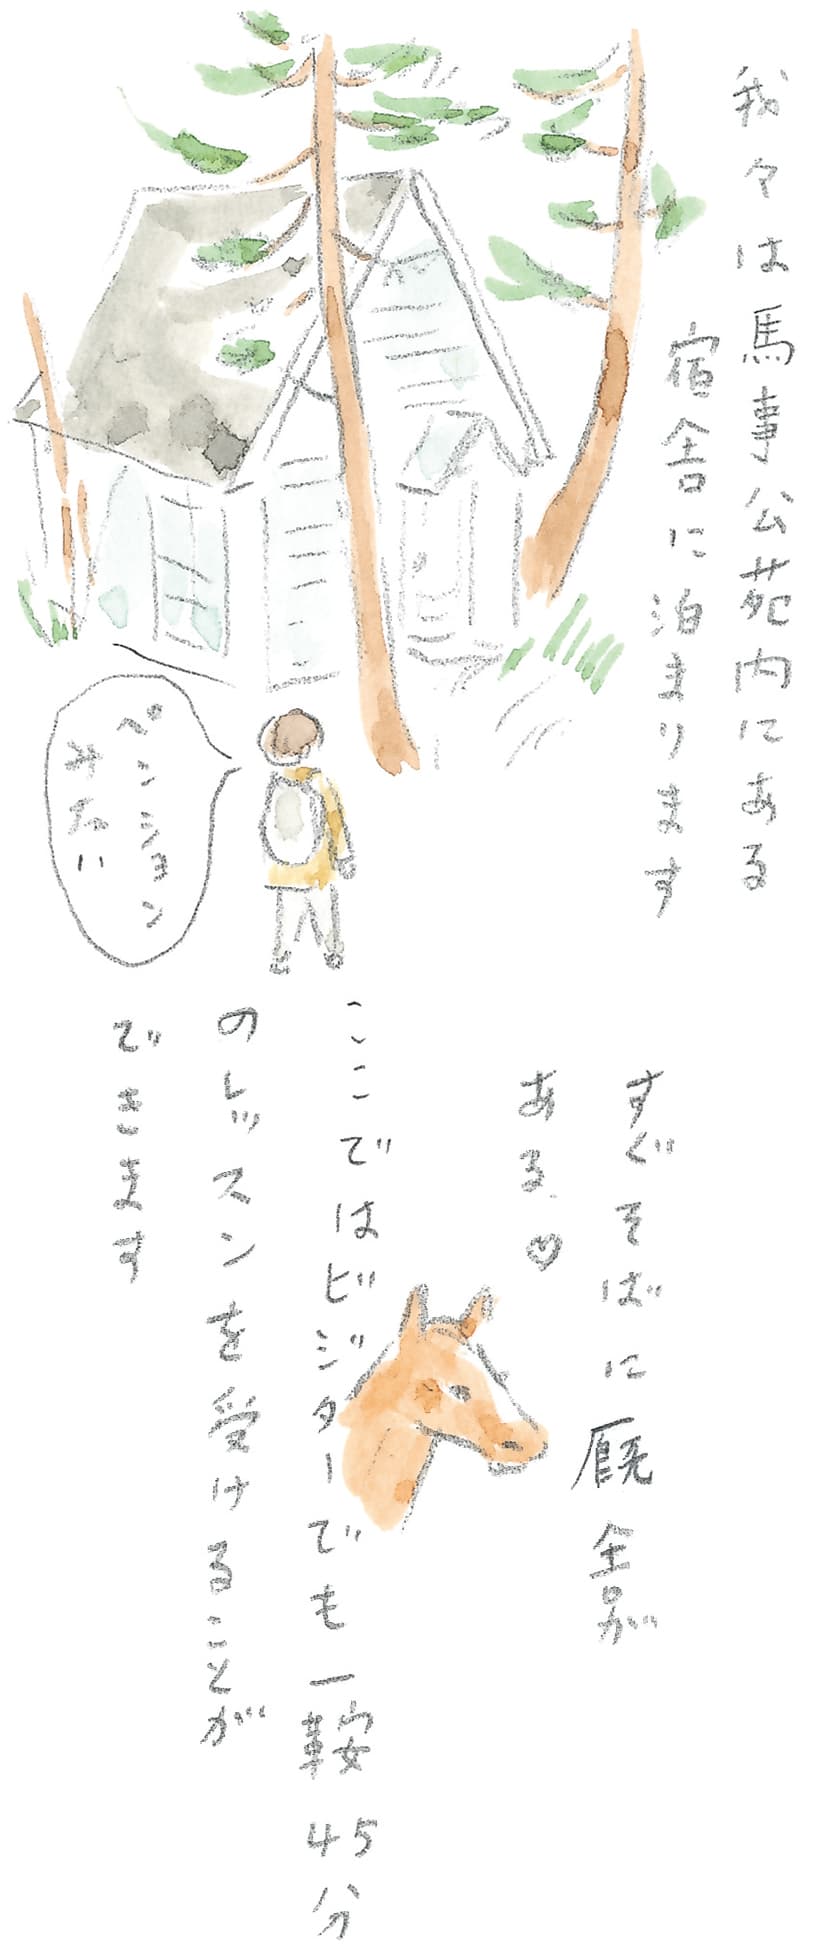 我々は馬事公苑内にある
宿舎に泊まります
ペンション
みたい
すぐそばに厩舎が
ある♡
ここではビジターでも一鞍45分
のレッスンを受けることが
できます